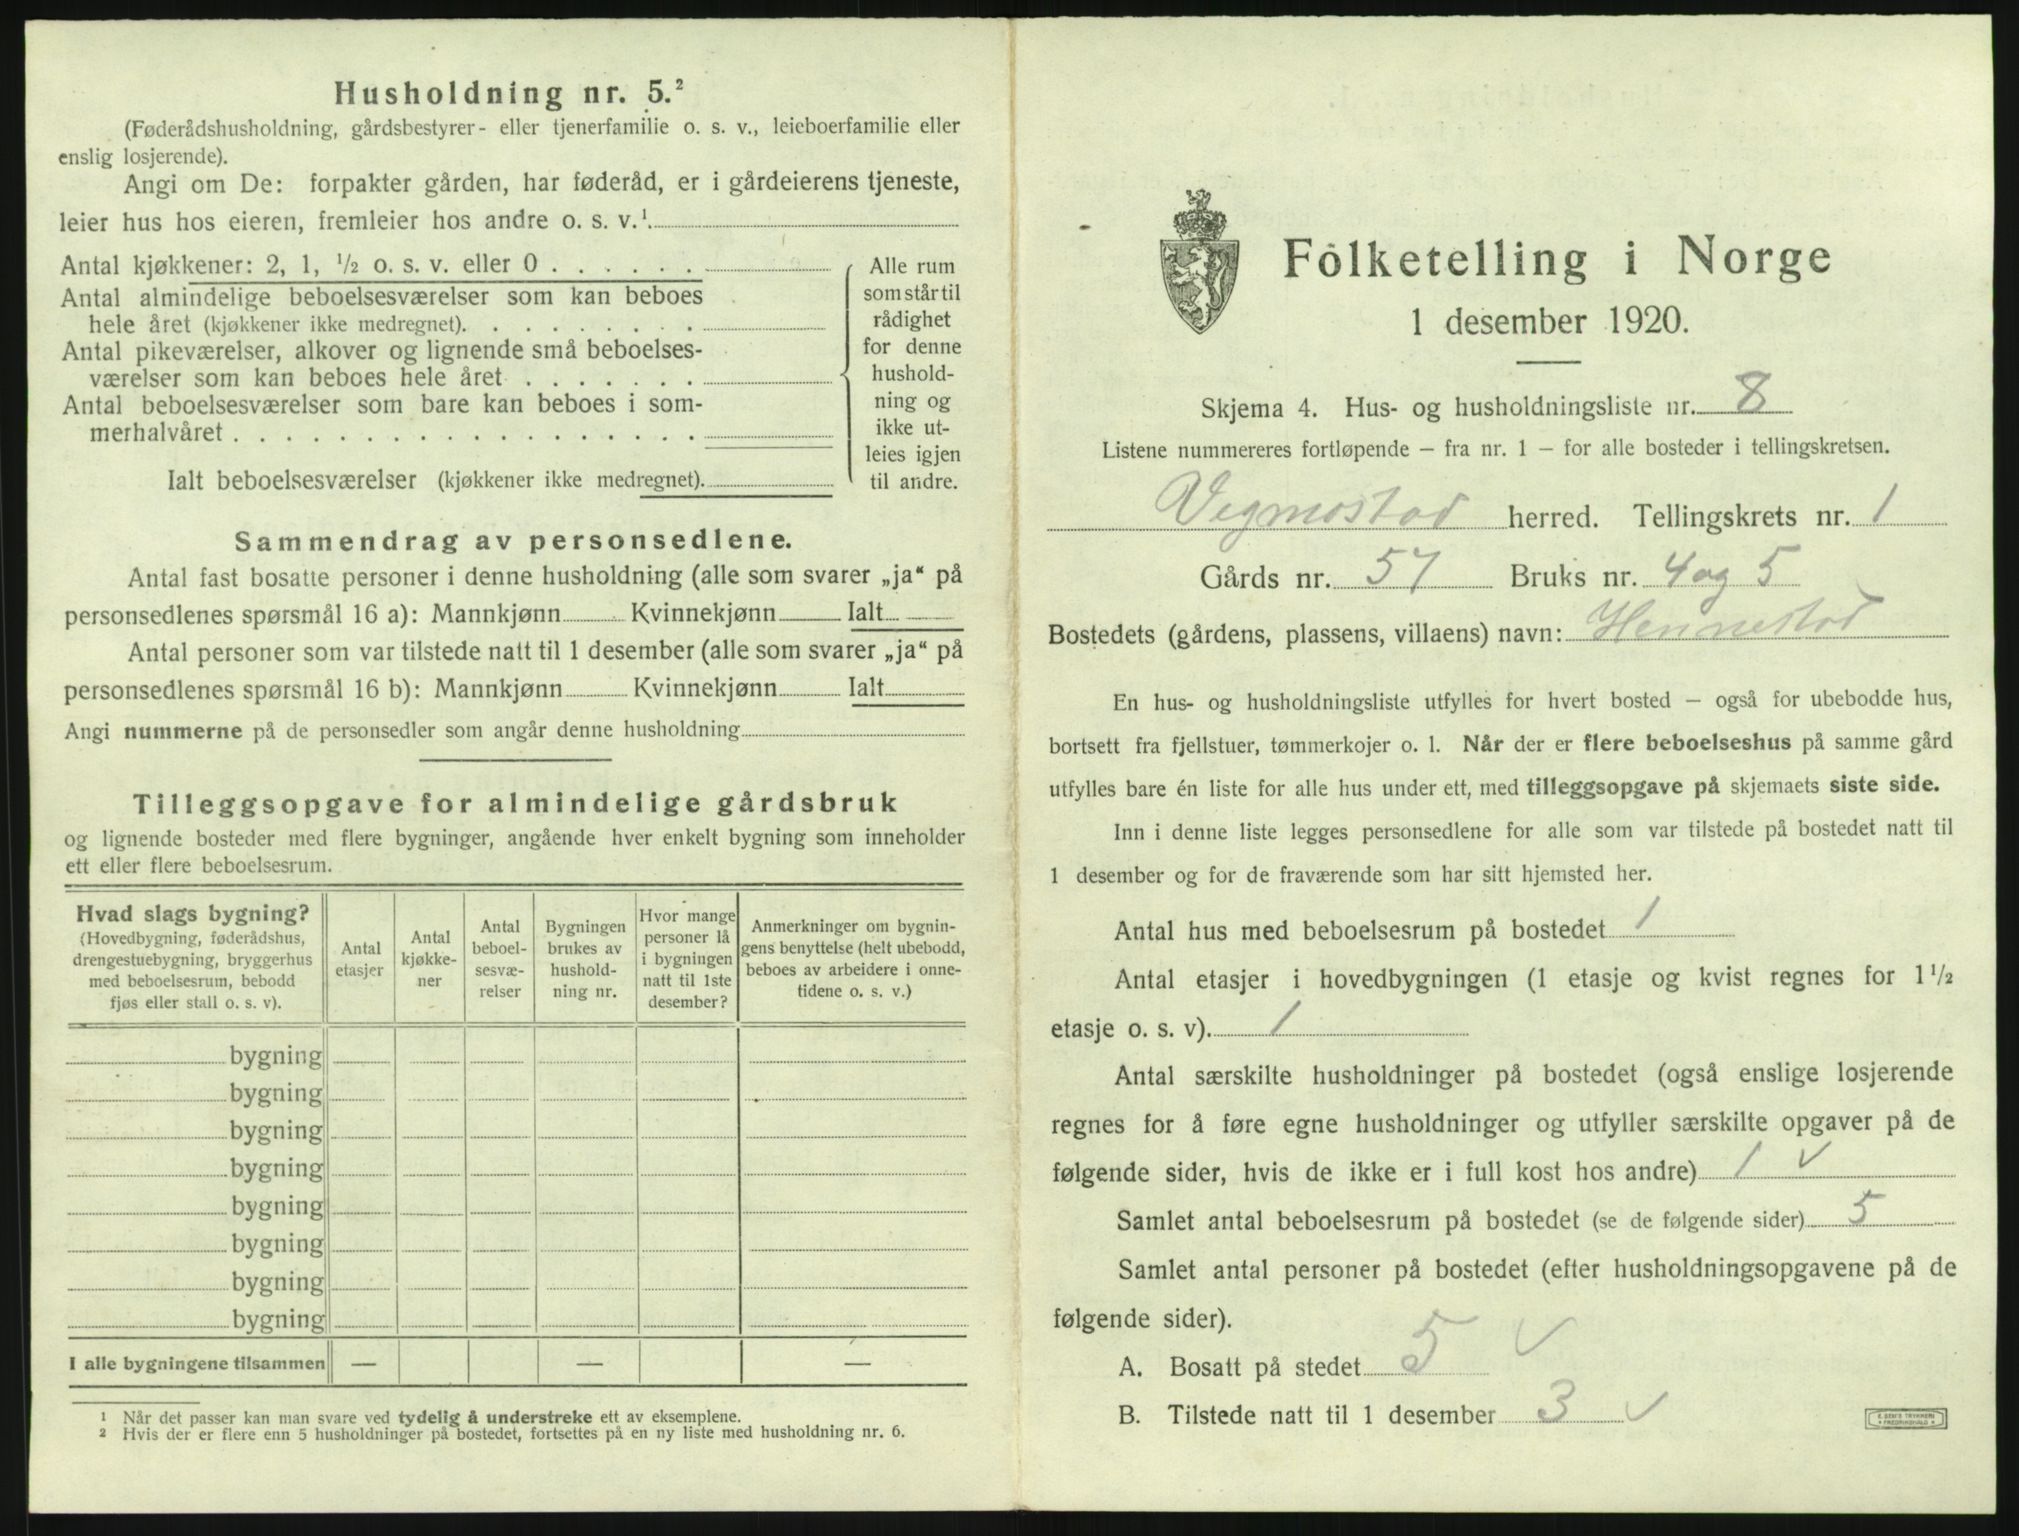 Husholdning nr. 5.²
(Føderådshusholdning, gårdsbestyrer- eller tjenerfamilie o. s. v., leieboerfamilie eller
enslig losjerende).
Angi om De: forpakter gården, har føderåd, er i gårdeierens tjeneste,
leier hus hos eieren, fremleier hos andre o. s. v.¹
Antal kjøkkener: 2, 1, ½ o. s. v. eller 0 . . . . . .
Antal almindelige beboelsesværelser som kan beboes
hele året (kjøkkener ikke medregnet). . . . . . . . .
Antal pikeværelser, alkover og lignende små beboelses-
værelser som kan beboes hele året . . . . . . .
Antal beboelsesværelser som bare kan beboes i som-
merhalvåret . . . . . . . . . . . . . . . . . .
Ialt beboelsesværelser (kjøkkener ikke medregnet).
Alle rum
som står til
rådighet
for denne
hushold-
ning og
ikke ut-
leies igjen
til andre.
Sammendrag av personsedlene.
Antal fast bosatte personer i denne husholdning (alle som svarer „ja“ på
personsedlenes spørsmål 16 a): Mannkjønn Kvinnekjønn Ialt
Antal personer som var tilstede natt til 1 desember (alle som svarer „ja“ på
personsedlenes spørsmål 16 b): Mannkjønn Kvinnekjønn Ialt
Angi nummerne på de personsedler som angår denne husholdning
Tilleggsopgave for almindelige gårdsbruk
og lignende bosteder med flere bygninger, angående hver enkelt bygning som inneholder
ett eller flere beboelsesrum.
Hvad slags bygning?
(Hovedbygning, føderådshus,
drengestuebygning, bryggerhus
med beboelsesrum, bebodd
fjøs eller stall o. s. v).
Antal
etasjer
Antal
kjøkke-
ner
Antal
beboel-
sesvæ-
relser
Bygningen
brukes av
hushold-
ning nr.
Hvor mange
personer lå
i bygningen
natt til 1ste
desember?
Anmerkninger om bygnin-
gens benyttelse (helt ubebodd,
beboes av arbeidere i onne-
tidene o. s. v.)
bygning
bygning
bygning
bygning
bygning
bygning
bygning
bygning
I alle bygningene tilsammen — — —
¹ Når det passer kan man svare ved tydelig å understreke ett av eksemplene.
² Hvis der er flere enn 5 husholdninger på bostedet, fortsettes på en ny liste med husholdning nr. 6.
Folketelling i Norge
1 desember 1920.
Skjema 4. Hus- og husholdningsliste nr. 8
Listene nummereres fortløpende – fra nr. 1 – for alle bosteder i tellingskretsen.
Vigmostad herred. Tellingskrets nr. 1
Gårds nr. 57 Bruks nr. 4 og 5
Bostedets (gårdens, plassens, villaens) navn: Hennestad
En hus- og husholdningsliste utfylles for hvert bosted – også for ubebodde hus,
bortsett fra fjellstuer, tømmerkojer o. l. Når der er flere beboelseshus på samme gård
utfylles bare én liste for alle hus under ett, med tilleggsopgave på skjemaets siste side.
Inn i denne liste legges personsedlene for alle som var tilstede på bostedet natt til
1 desember og for de fraværende som har sitt hjemsted her.
Antal hus med beboelsesrum på bostedet 1
Antal etasjer i hovedbygningen (1 etasje og kvist regnes for 1½
etasje o. s. v). 1
Antal særskilte husholdninger på bostedet (også enslige losjerende
regnes for å føre egne husholdninger og utfyller særskilte opgaver på de
følgende sider, hvis de ikke er i full kost hos andre) 1 ✓
Samlet antal beboelsesrum på bostedet (se de følgende sider) 5
Samlet antal personer på bostedet (efter husholdningsopgavene på de
følgende sider).
A. Bosatt på stedet 5 ✓
B. Tilstede natt til 1 desember 3 ✓
E. SEM'S TRYKKERI
FREDRIKSHALD